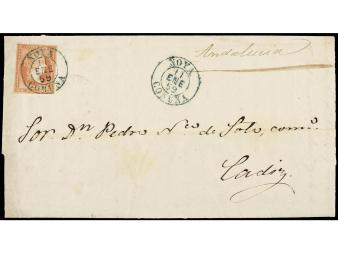 NOYA
11
ENE
59
CORUÑA
NOYA
11
ENE
59
CORUÑA
Andalucia
Sor. Dn. Pedro Nco. de Solo, como.
Cadiz.